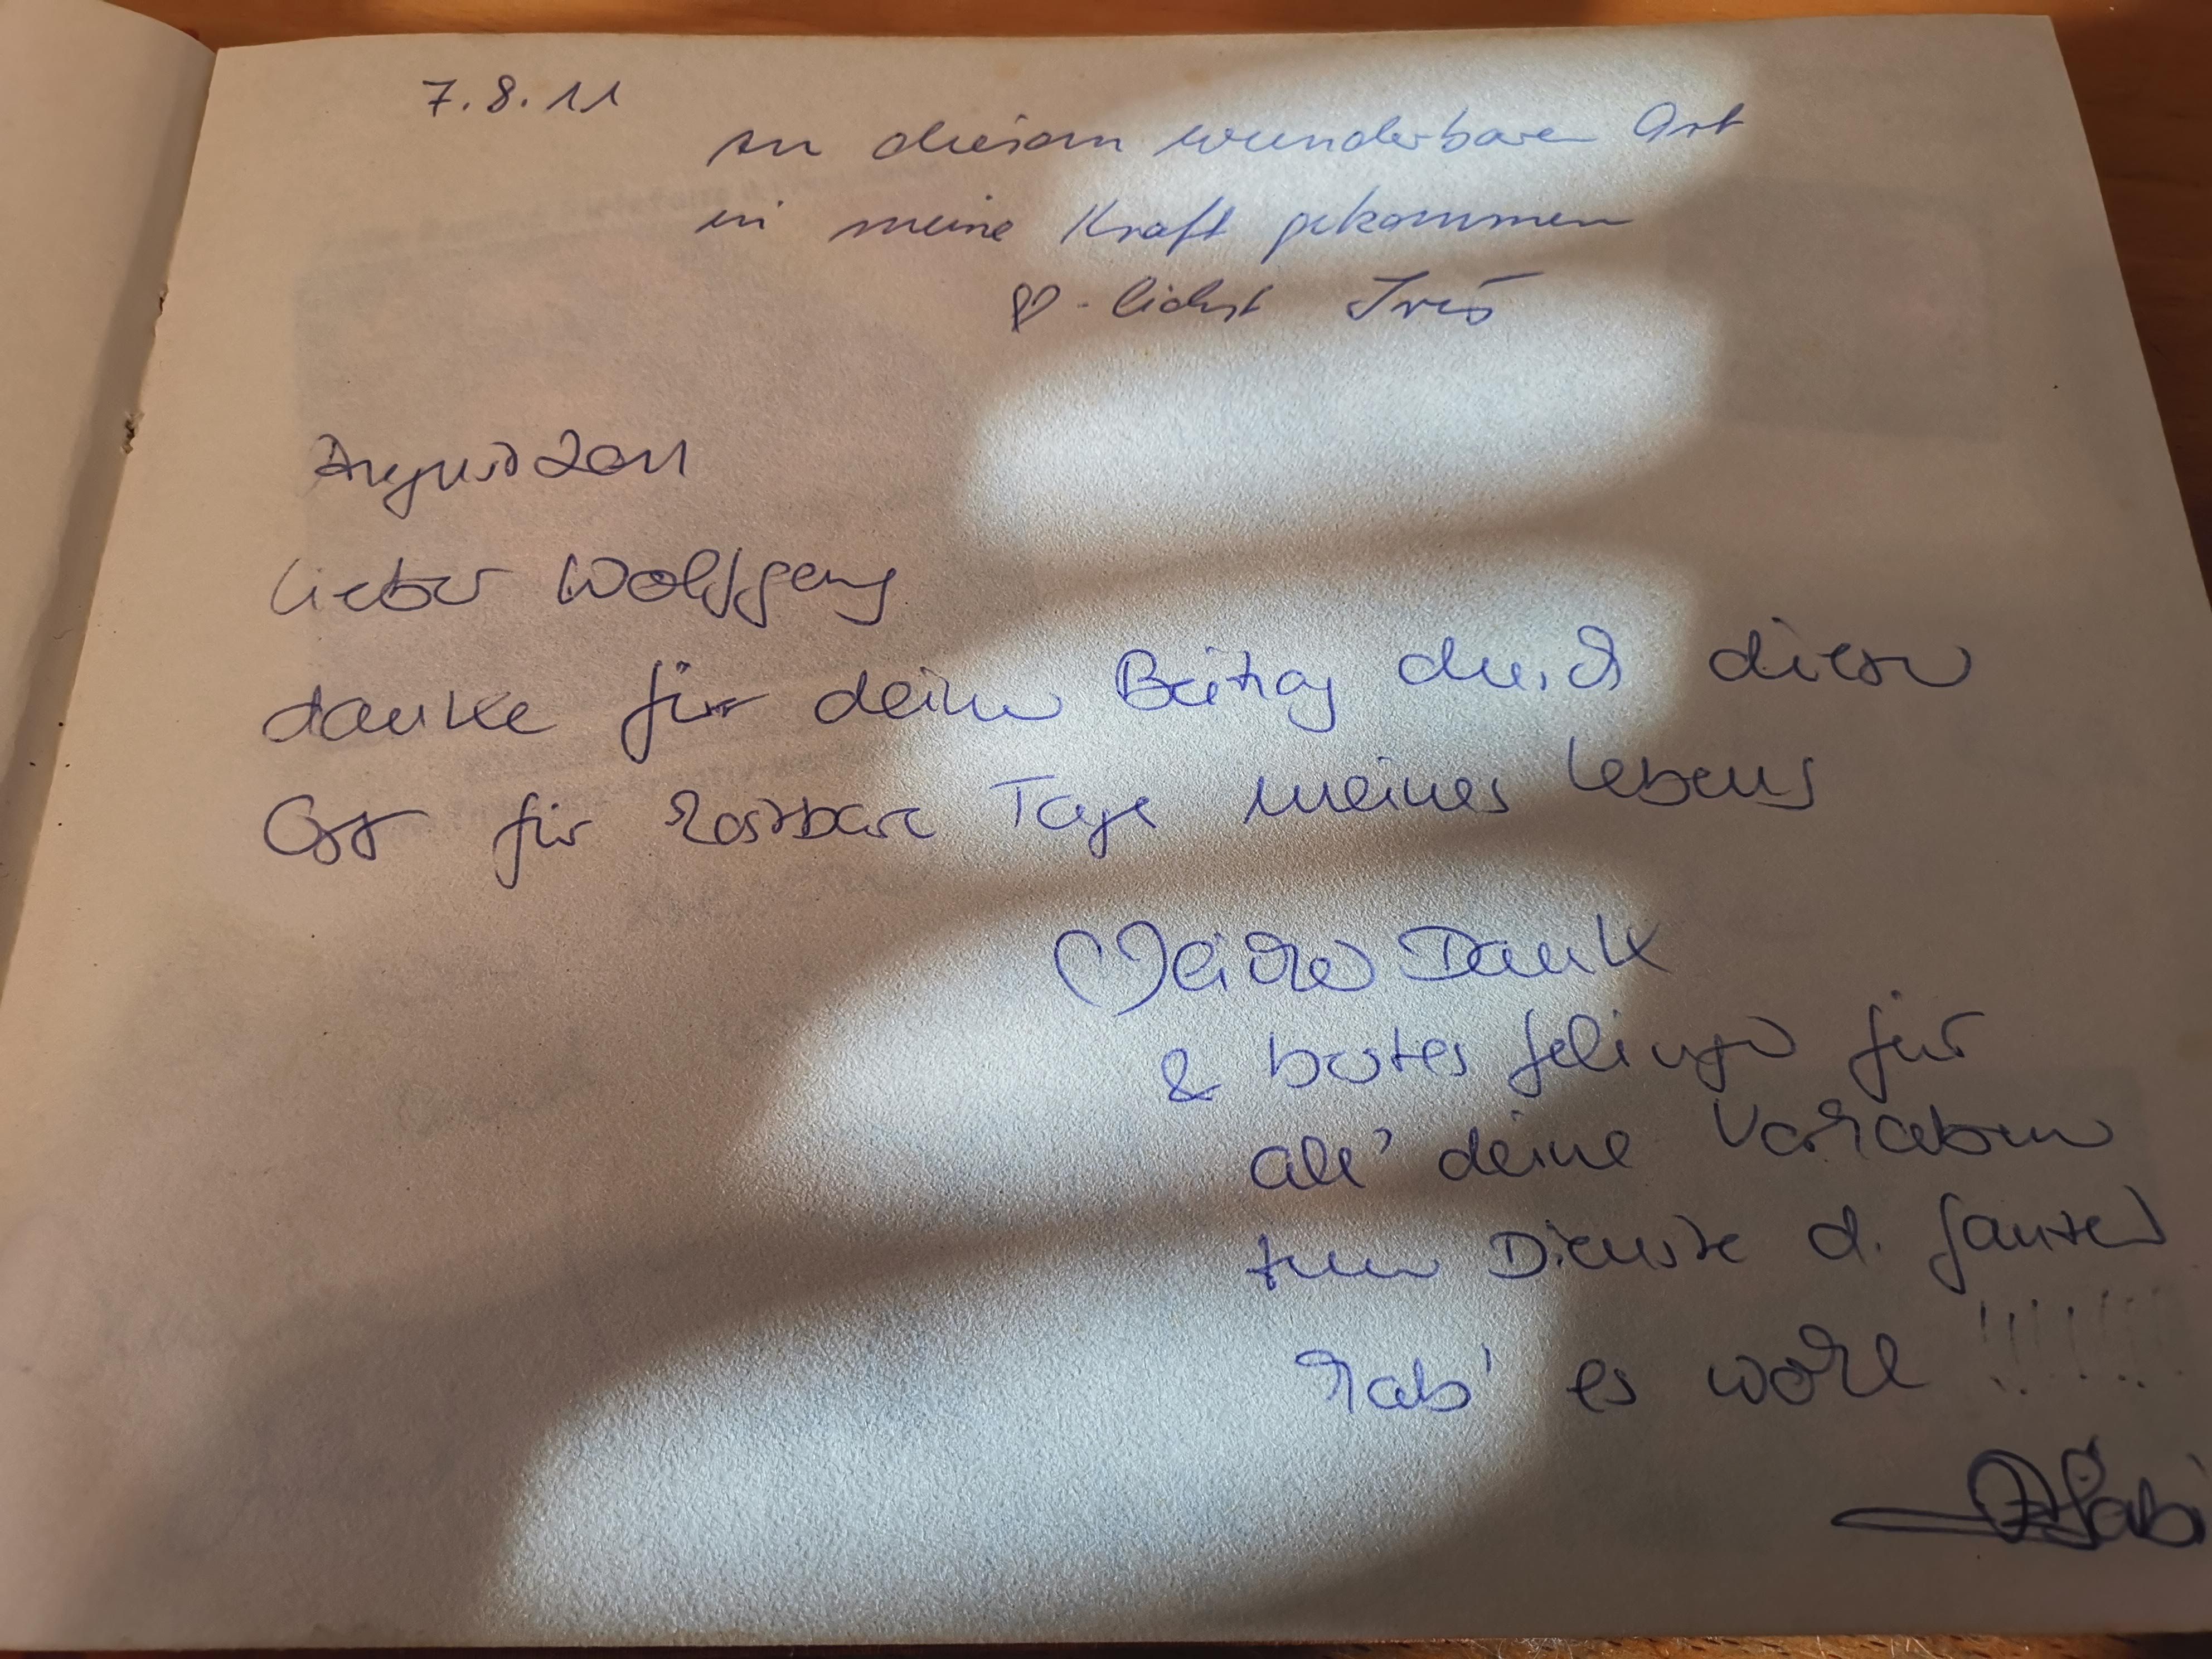 7.8.11
An diesem wunderbaren Ort
in meine Kraft gekommen
♡-lichst Iris
August 2011
Lieber Wolfgang
danke für deinen Beitrag durch diesen
Ort für kostbare Tage meines Lebens
♡leichen Dank
& bestes Gelingen für
all' deine Vorhaben
zum Dienste d. Ganzen
hab' es wohl !!!!!!
Gabi